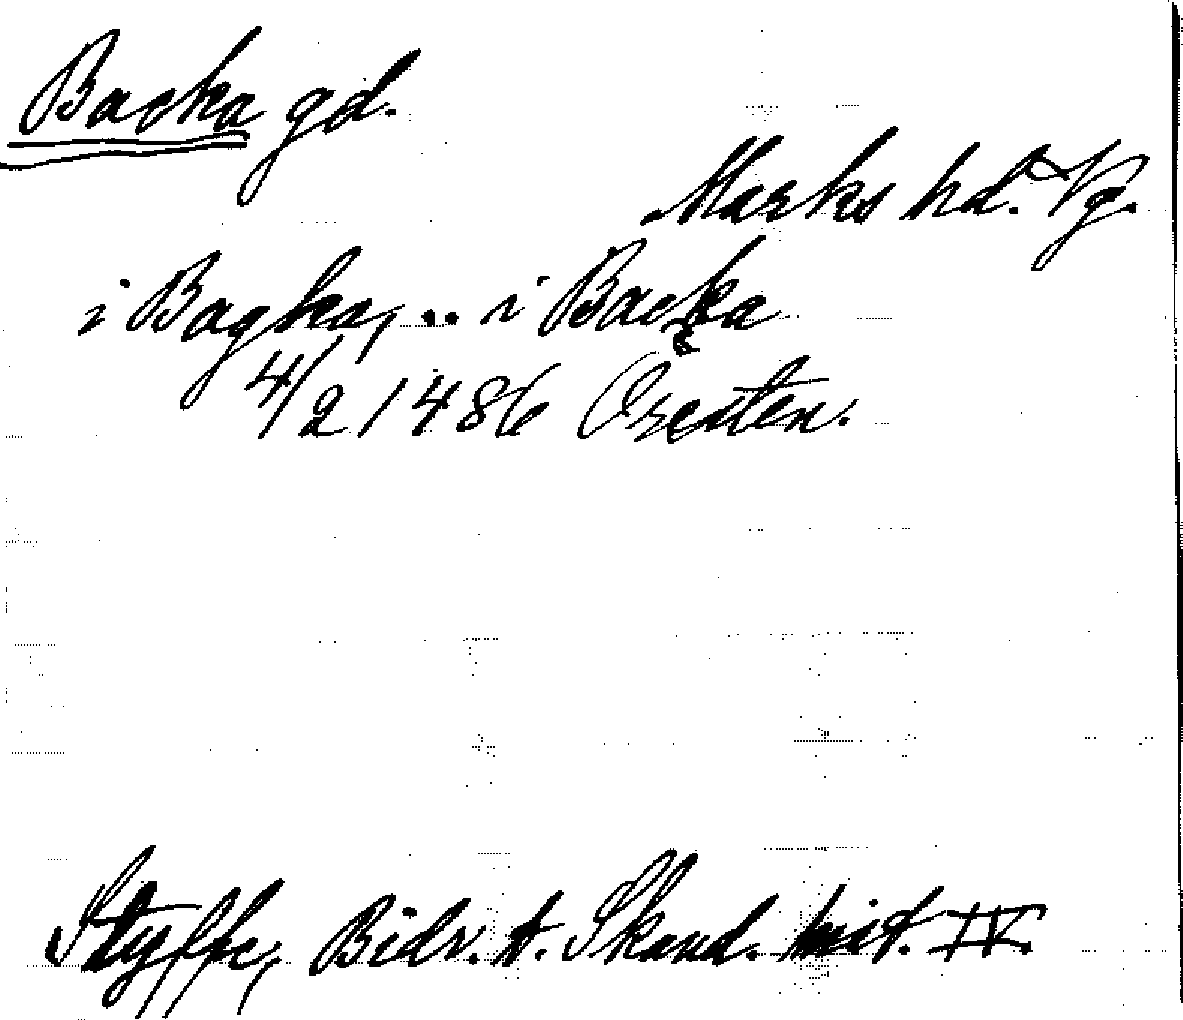 Backa gd.
Marks hd. Vg.
i Bagka, .. i Backa
4/2 1486 Oresten.
Styffe, Bidr. t. Skand. hist. IV.